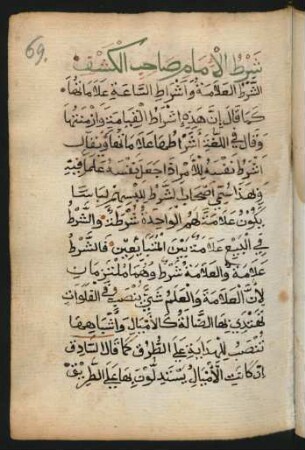 69.
شرط الإمام صاحب الكشف
الشرط العلامة وأشراط الساعة علاماتها
كما قال إن هذه أشراط القيامة وأزمنتها
وقال في اللغة أشراطها علاماتها ويقال
أشرط نفسه للأمر إذا جعل نفسه علما فيه
ولهذا سمي أصحاب الشرط للبسهم لباسا
يكون علامة لهم الواحدة شرطة والشرط
في البيع علامة بين المتبايعين فالشرط
علامة والعلامة شرط وهما ملتزمان
لأن العلامة والعلم شيء ينصب في الفلوات
تهتدي بها الضالة كالأميال وأشباهها
تنصب للهداية على الطرق كما قال الصادق
إن كانت الأميال يستدلون بها على الطريق